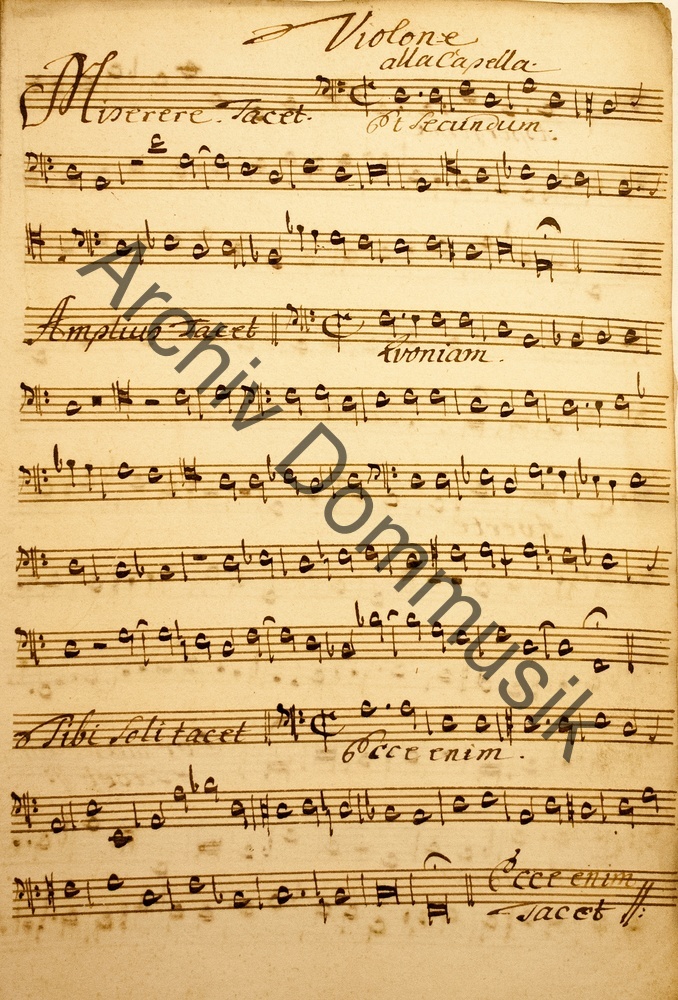 Violone
alla Capella.
Miserere. Tacet.
Et Secundum.
Amplius Tacet
Quoniam.
Tibi Soli tacet
Ecce enim.
Ecce enim
Tacet
Archiv Dommusik